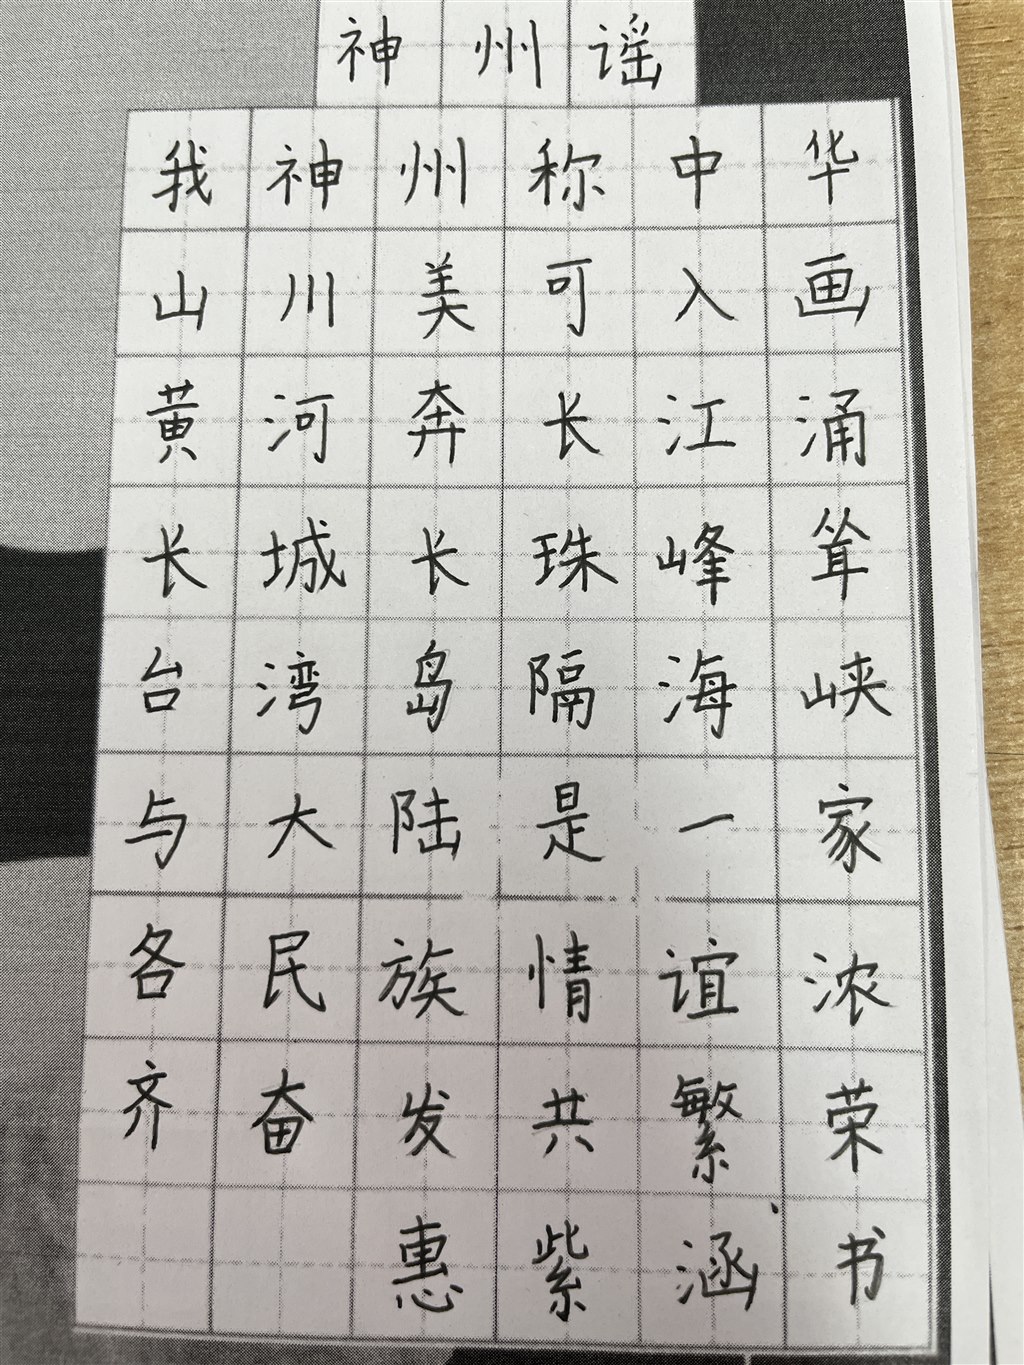 神州谣
我神州称中华
山川美可入画
黄河奔长江涌
长城长珠峰耸
台湾岛隔海峡
与大陆是一家
各民族情谊浓
齐奋发共繁荣
惠紫涵书